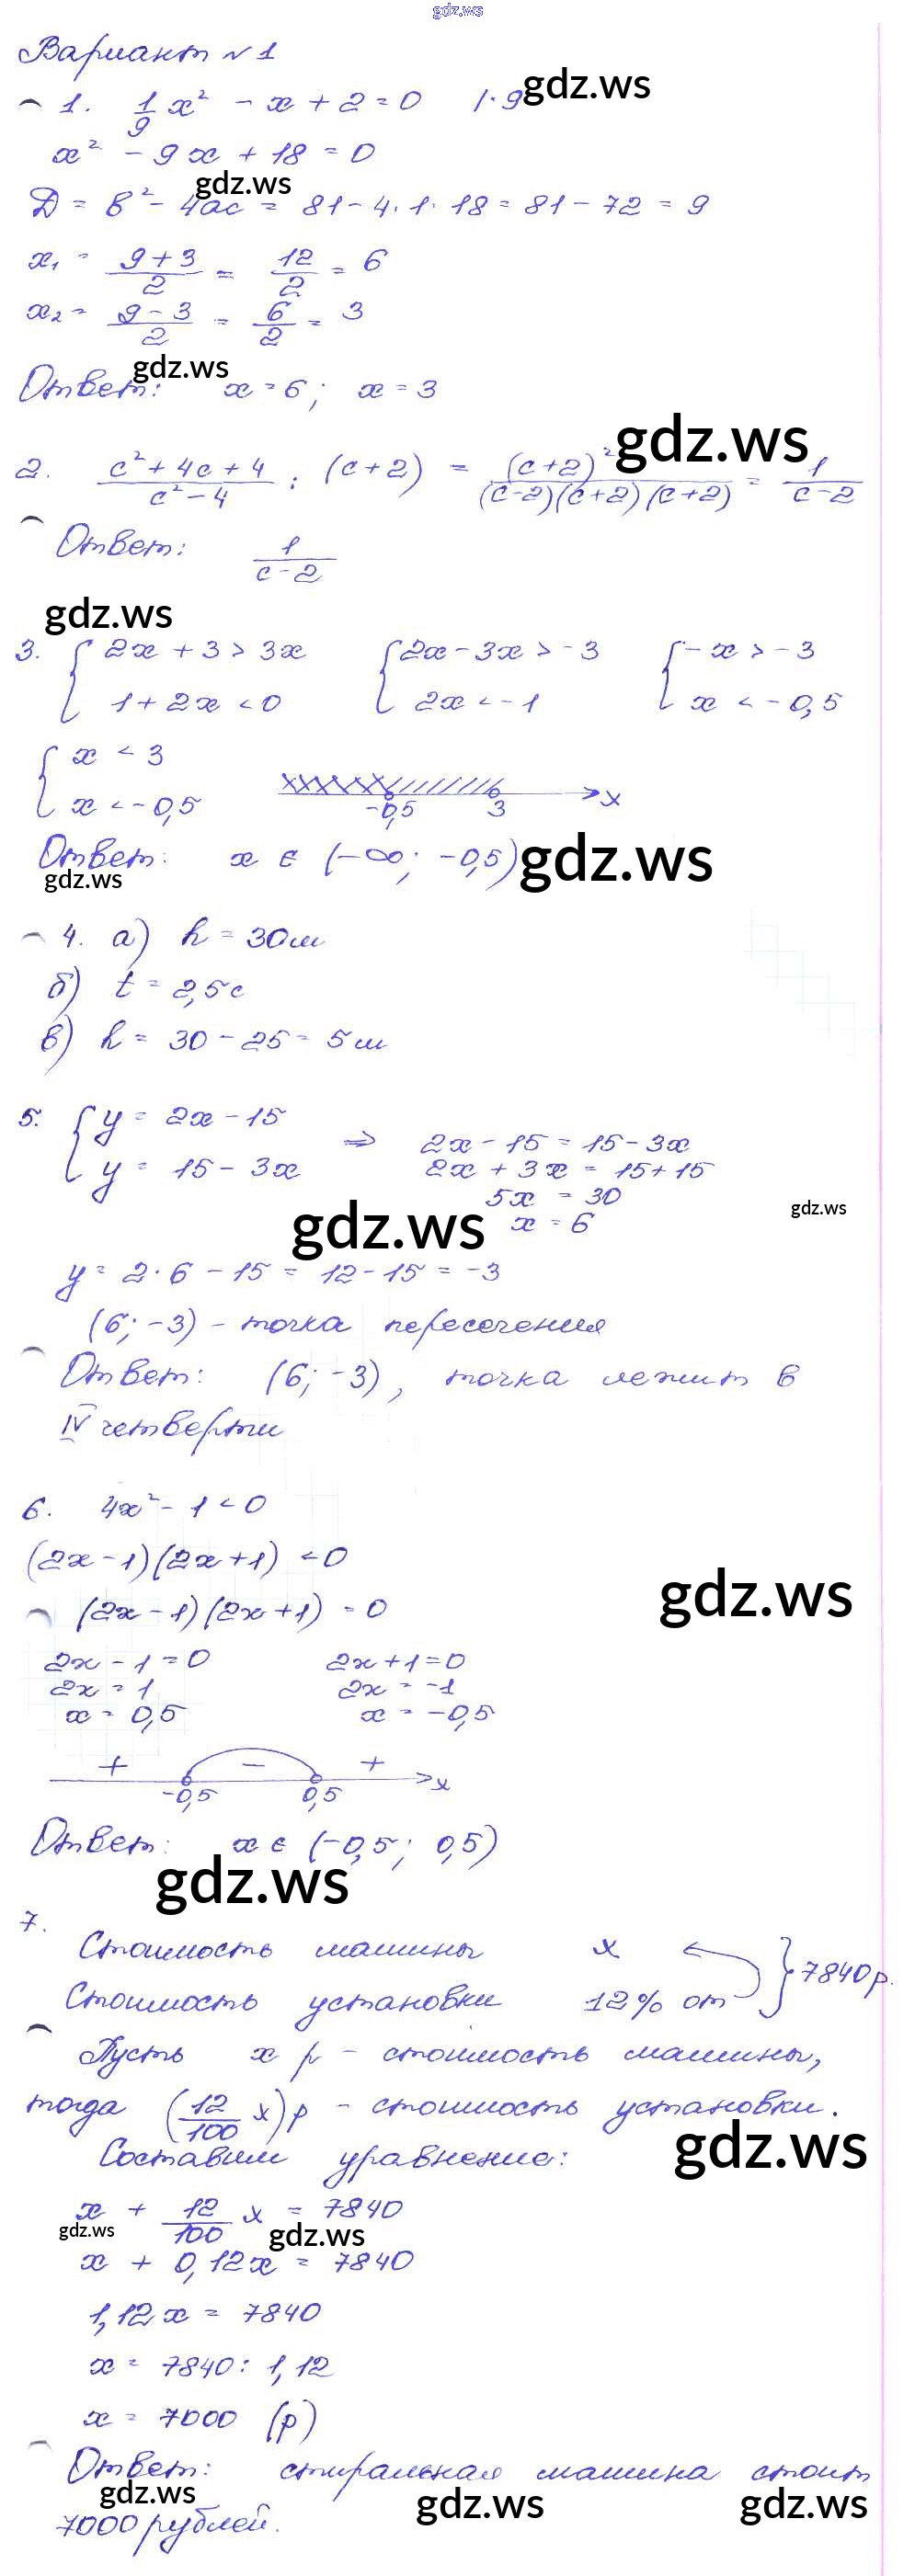 gdz.ws
Вариант №1
1. 1/9 x² - x + 2 = 0 |·9 gdz.ws
x² - 9x + 18 = 0
gdz.ws
D = b² - 4ac = 81 - 4·1·18 = 81 - 72 = 9
x₁ = (9+3)/2 = 12/2 = 6
x₂ = (9-3)/2 = 6/2 = 3
gdz.ws
Ответ: x = 6; x = 3
gdz.ws
2. (c² + 4c + 4)/(c² - 4) : (c+2) = (c+2)²/((c-2)(c+2)(c+2)) = 1/(c-2)
Ответ: 1/(c-2)
gdz.ws
3. { 2x + 3 > 3x { 2x - 3x > -3 { -x > -3
1 + 2x < 0 2x < -1 x < -0,5
{ x < 3
x < -0,5 -0,5 3 x
Ответ: x ∈ (-∞; -0,5) gdz.ws
gdz.ws
4. а) h = 30 м
б) t = 2,5 с
в) h = 30 - 25 = 5 м
5. { y = 2x - 15 ⇒ 2x - 15 = 15 - 3x
y = 15 - 3x 2x + 3x = 15 + 15
5x = 30
gdz.ws x = 6 gdz.ws
y = 2·6 - 15 = 12 - 15 = -3
(6; -3) - точка пересечения
Ответ: (6; -3), точка лежит в
IV четверти
6. 4x² - 1 < 0
(2x - 1)(2x + 1) < 0
gdz.ws
(2x - 1)(2x + 1) = 0
2x - 1 = 0 2x + 1 = 0
2x = 1 2x = -1
x = 0,5 x = -0,5
+ - +
-0,5 0,5 x
Ответ: x ∈ (-0,5; 0,5)
gdz.ws
7.
Стоимость машины x } 7840 р.
Стоимость установки 12% от
Пусть x р - стоимость машины,
тогда (12/100 x) р - стоимость установки.
gdz.ws
Составим уравнение:
x + 12/100 x = 7840
gdz.ws gdz.ws
x + 0,12x = 7840
1,12x = 7840
x = 7840 : 1,12
x = 7000 (р)
Ответ: стиральная машина стоит
gdz.ws gdz.ws gdz.ws
7000 рублей.